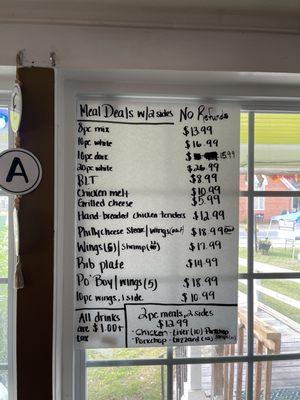 Meal Deals w/2 sides No Refunds
8pc mix $13.99
10pc white $16.99
10pc dark 15.99
20pc white $26.99
BLT $8.99
Chicken melt $10.99
Grilled cheese $5.99
Hand-breaded chicken tenders $12.99
Philly cheese steak/wings $18.99
Wings(5)/shrimp $17.99
Rib plate $14.99
Po'Boy/wings (5) $18.99
10pc wings, 1 side $10.99
All drinks are $1.00 + tax
2pc meals, 2 sides
$12.99
-Chicken -Liver (10) -Porkchop
-Porkchop -Gizzard
A